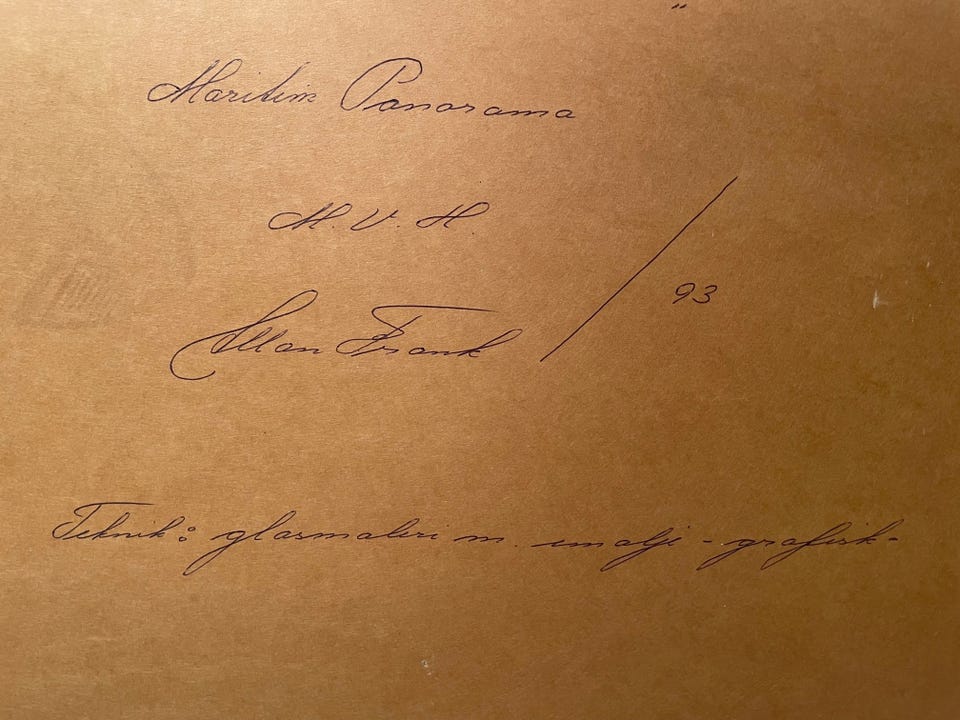 Maritim Panorama
M. V. H.
Allan Frank / 93
Teknik: glasmaleri m. emalje - grafisk -